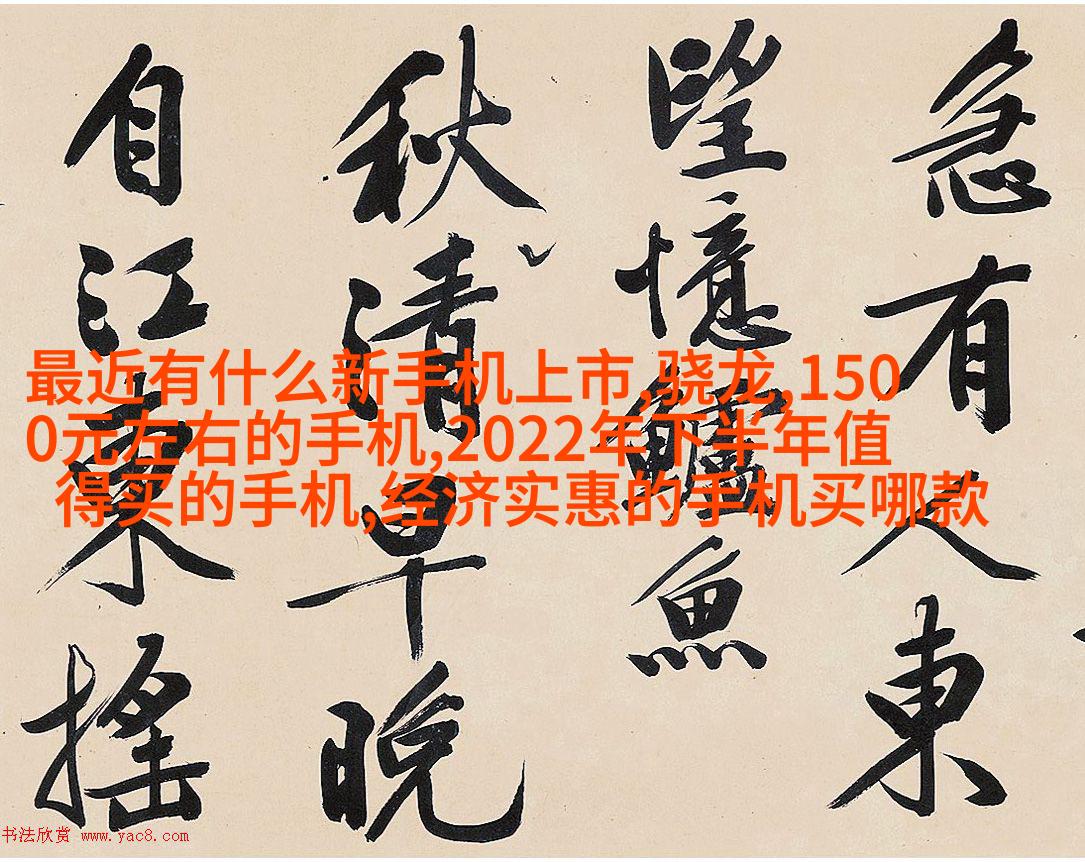 急有人東
望憶鱸魚
秋清早晚
自江東搖
最近有什么新手机上市,骁龙,150
0元左右的手机,2022年下半年值
得买的手机,经济实惠的手机买哪款
书法欣赏 www.yac8.com